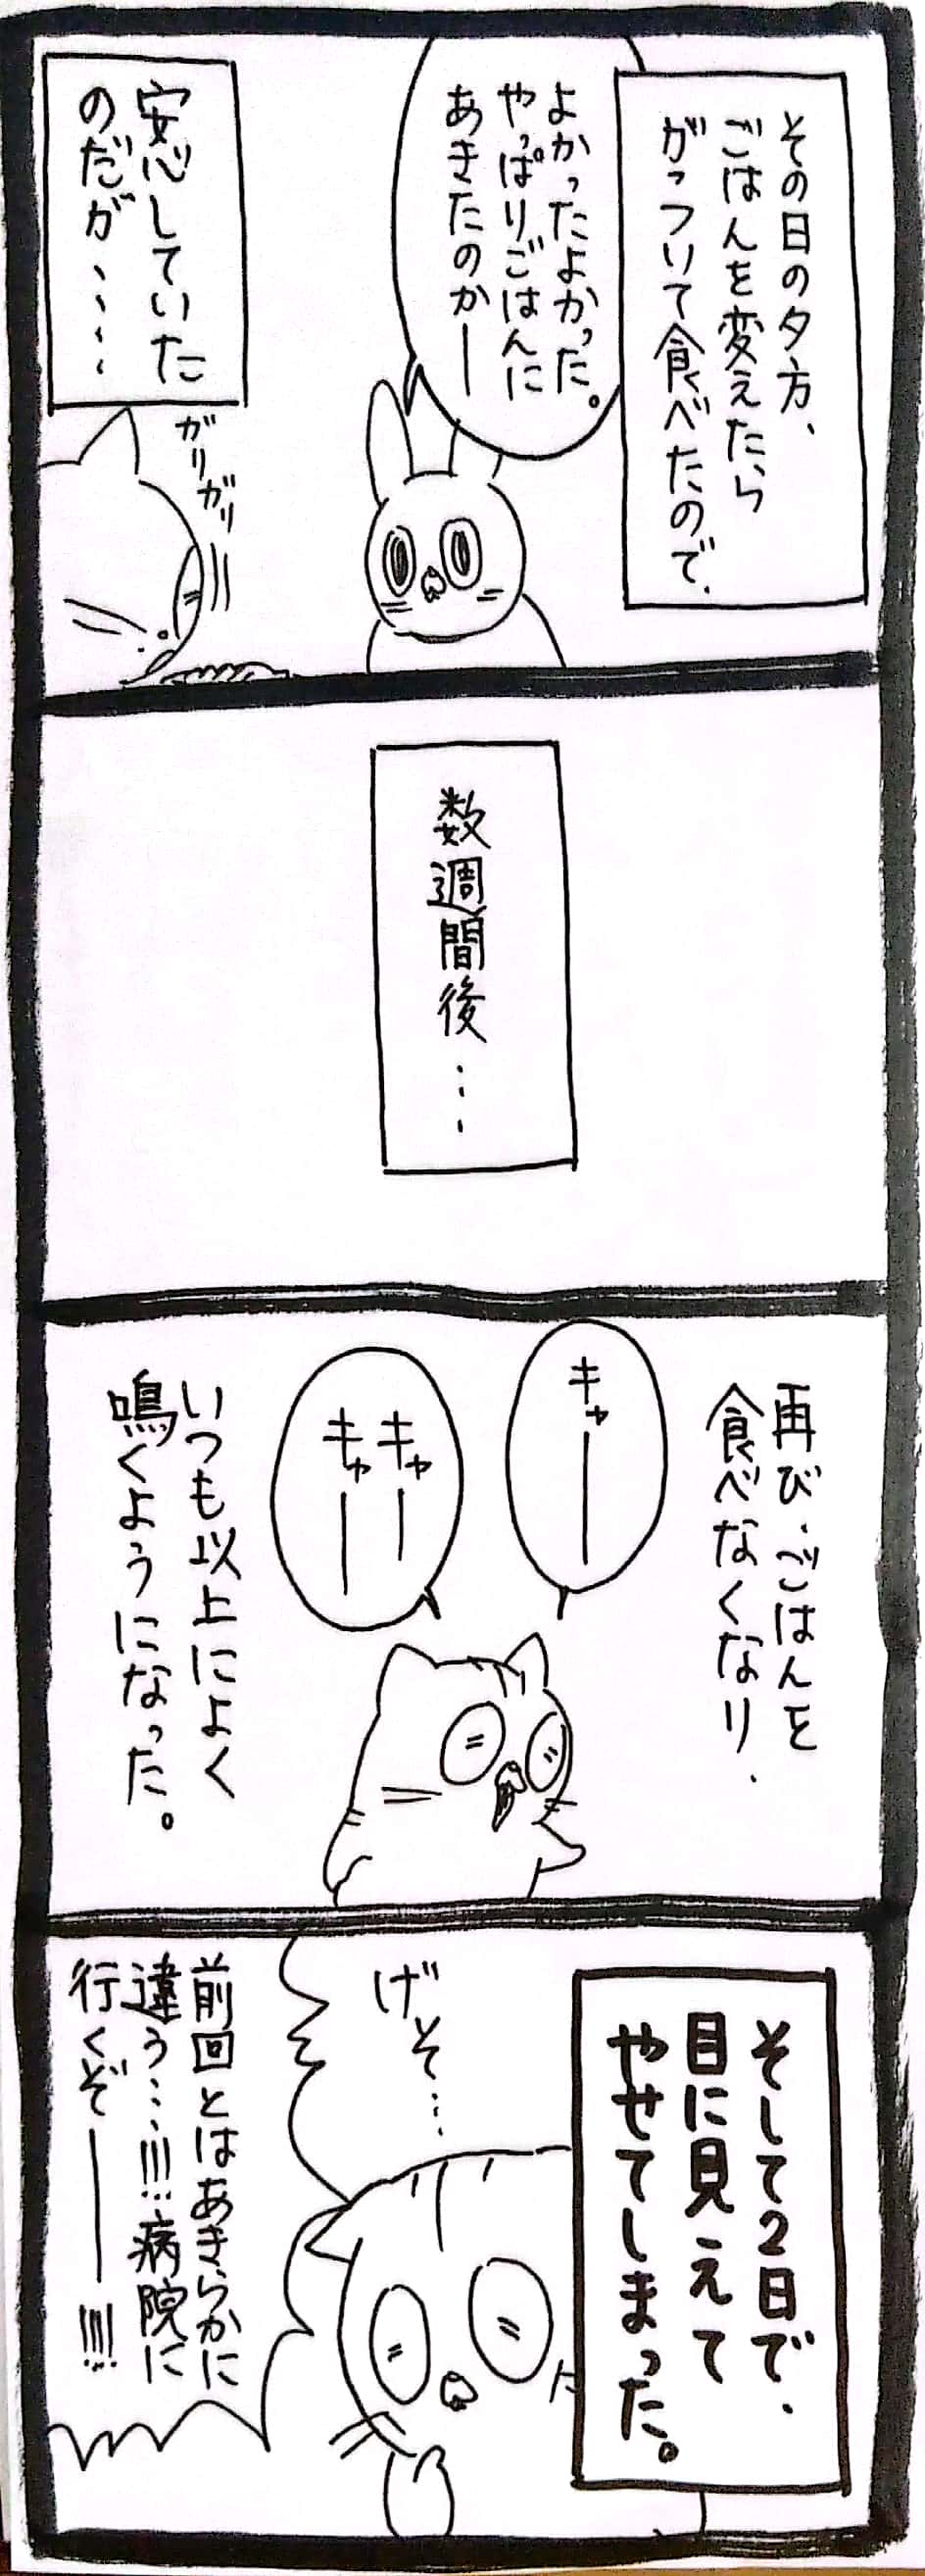 その日の夕方、
ごはんを変えたら
がっついて食べたので、
よかったよかった。
やっぱりごはんに
あきたのかー
安心していた
のだが、、、、
ガリガリ
数週間後…
再び、ごはんを
食べなくなり、
キャー
キャー
キャー
いつも以上によく
鳴くようになった。
そして2日で、
目に見えて
やせてしまった。
げそ…
前回とはあきらかに
違う…!!!!病院に
行くぞー!!!!